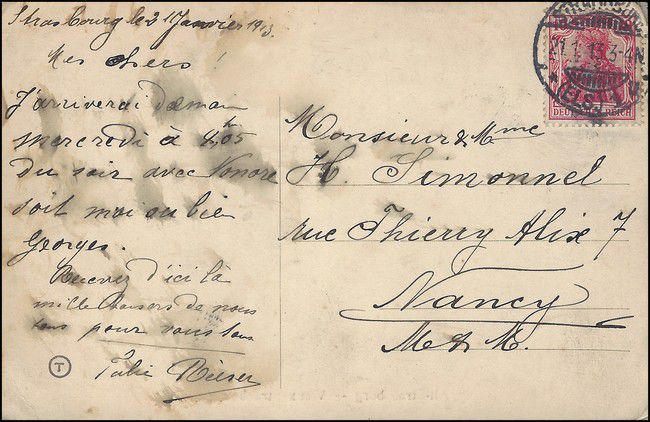 Strasbourg le 21 Janvier 1913.
Mes chers!
J'arriverai demain
mercredi à 4h05
du soir avec Nonore
soit moi ou bie
Georges.
Recevez d'ici là
mille baisers de nous
tous pour vous tous
Julie
T
Monsieur & Mme
H. Simonnel
rue Thierry Alix 7
Nancy
M & M.
21.1.13.3-4N.
(ELS.)
DEUTSCHES REICH